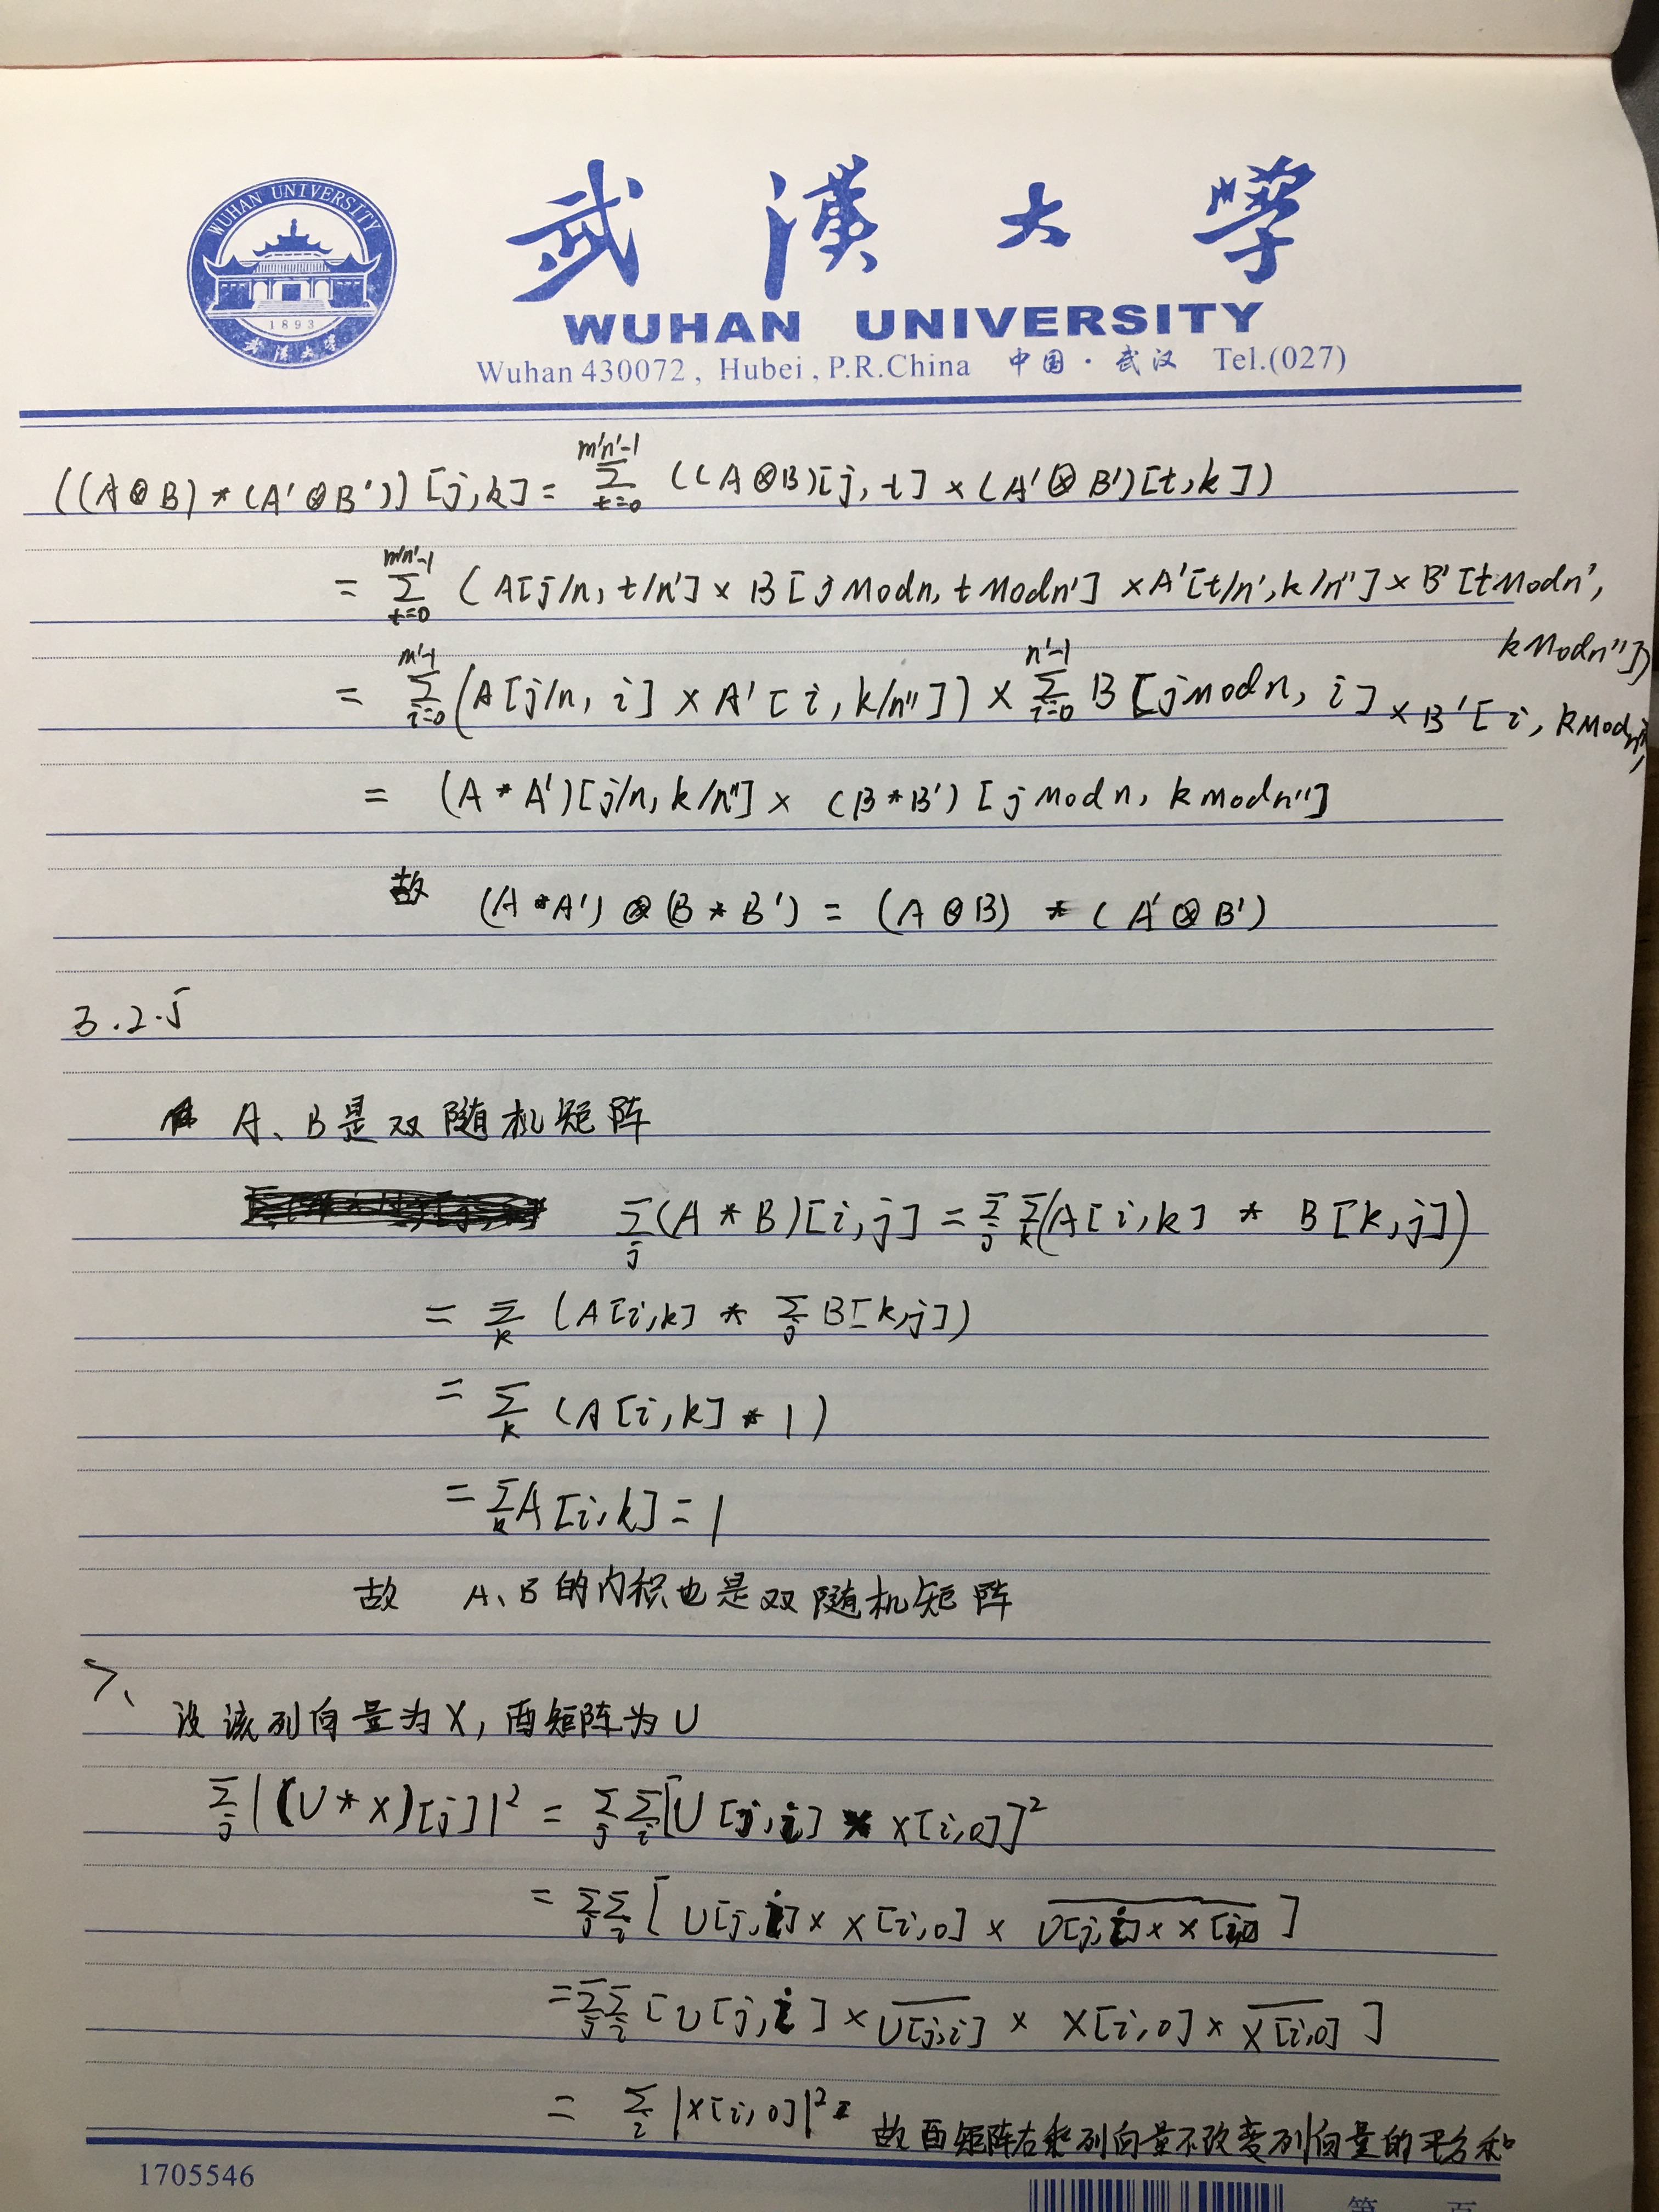 WUHAN UNIVERSITY
1893
武汉大学
武漢大学
WUHAN UNIVERSITY
Wuhan 430072, Hubei, P.R.China 中国·武汉 Tel.(027)
((A⊗B)*(A'⊗B'))[j,k] = Σ_{t=0}^{m'n'-1} ((A⊗B)[j,t]×(A'⊗B')[t,k])
= Σ_{t=0}^{m'n'-1} (A[j/n, t/n']×B[j Mod n, t Mod n']×A'[t/n', k/n'']×B'[t Mod n',
k Mod n''])
= Σ_{i=0}^{m'-1} (A[j/n, i]×A'[i, k/n''])×Σ_{i=0}^{n'-1} B[j mod n, i]×B'[i, k Mod n'']
= (A*A')[j/n, k/n'']×(B*B')[j Mod n, k mod n'']
故 (A*A')⊗(B*B') = (A⊗B)*(A'⊗B')
3.2.5
A、B是双随机矩阵
Σ_j (A*B)[i,j] = Σ_j Σ_k (A[i,k] * B[k,j])
= Σ_k (A[i,k] * Σ_j B[k,j])
= Σ_k (A[i,k] * 1)
= Σ_k A[i,k] = 1
故 A、B的内积也是双随机矩阵
7、
设该列向量为X, 酉矩阵为U
Σ_j |(U*X)[j]|² = Σ_j Σ_i [U[j,i] * X[i,0]]²
= Σ_j Σ_i [U[j,i]×X[i,0]×\overline{U[j,i]×X[i,0]}]
= Σ_j Σ_i [U[j,i]×\overline{U[j,i]}×X[i,0]×\overline{X[i,0]}]
= Σ_i |X[i,0]|² 故酉矩阵右乘列向量不改变列向量的平方和
1705546
第 页